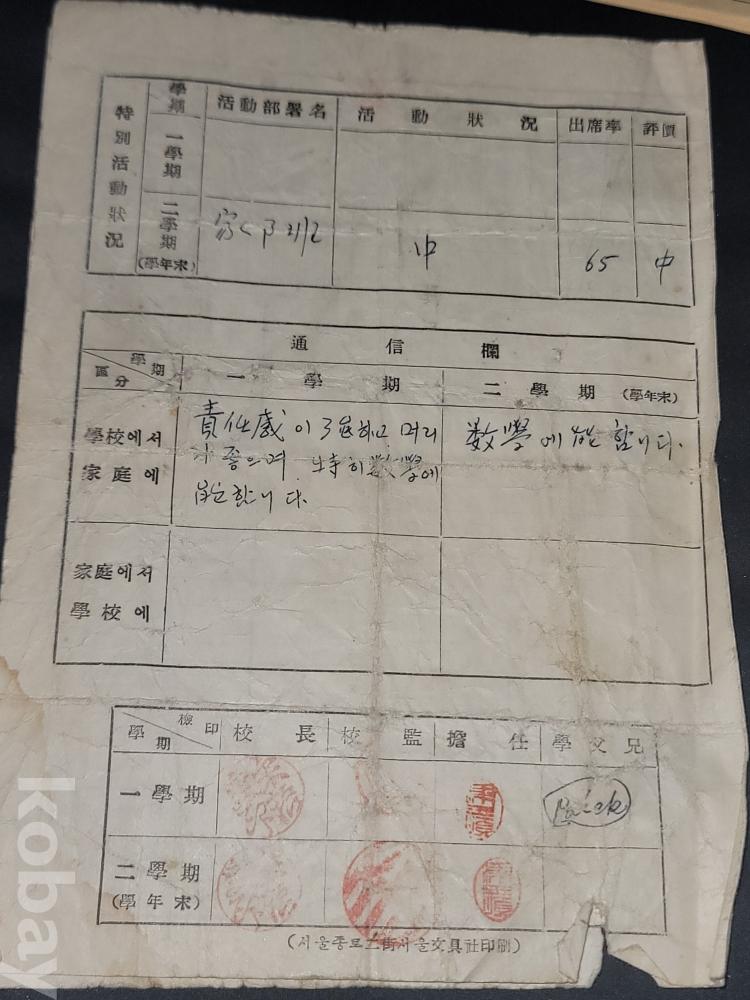 特別活動狀況
學期 活動部署名 活動狀況 出席率 評價
一學期
二學期
(學年末)
中 65 中
通信欄
學期
區分
一學期 二學期 (學年末)
學校에서
家庭에
責任感이 强하고 머리
가 좋으며 特히 數學에
能합니다.
數學에 能합니다.
家庭에서
學校에
檢印
學期
校長 校監 擔任 學父兄
一學期
Paick
二學期
(學年末)
(서울종로二街서울文具社印刷)
kobay